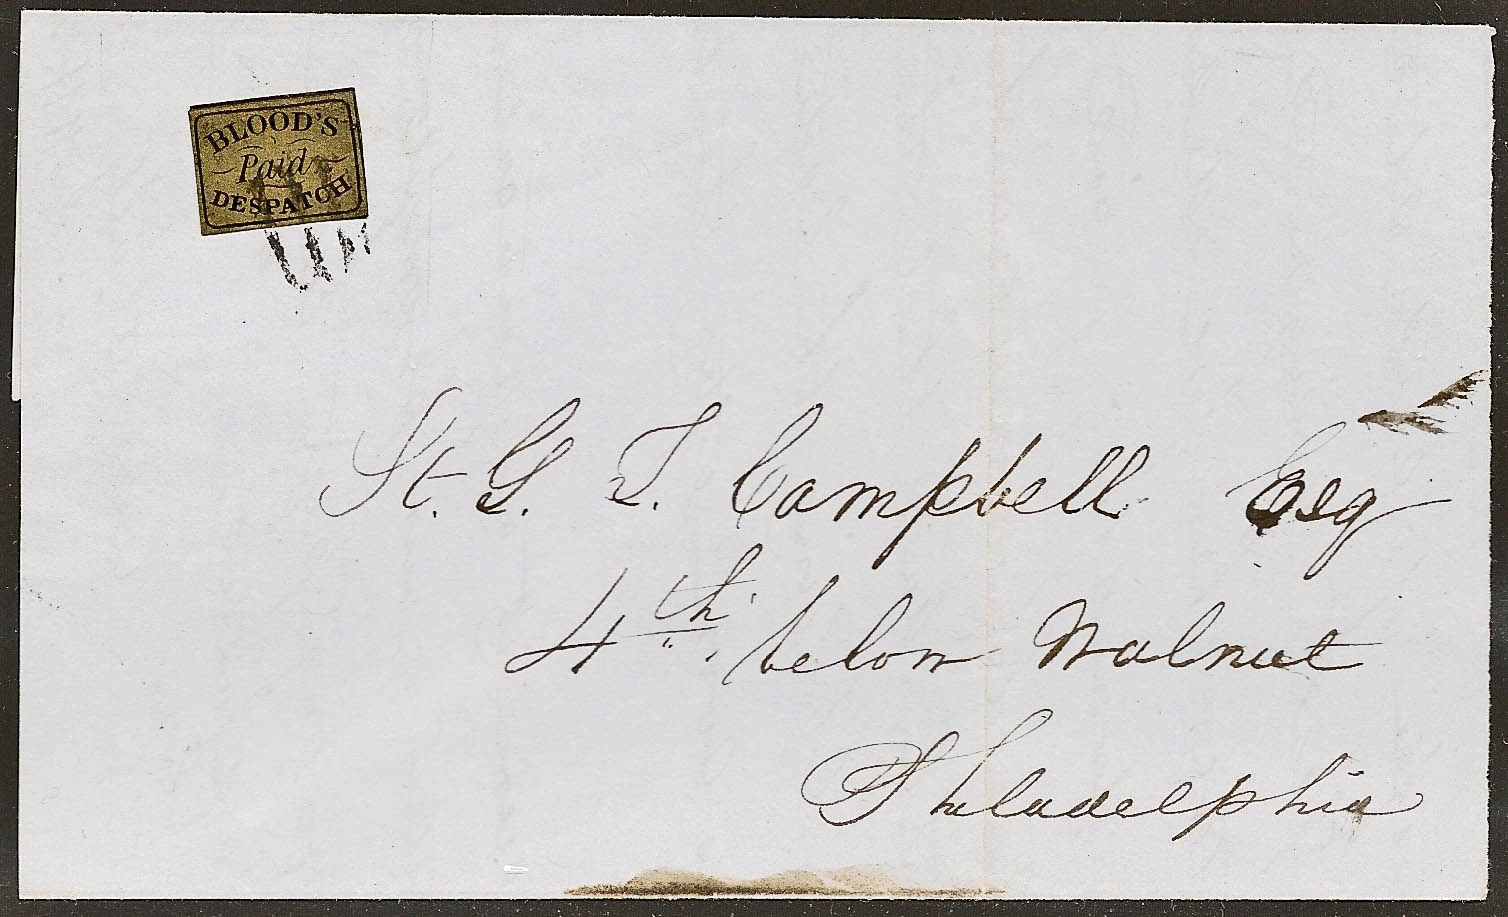 BLOOD'S
Paid
DESPATCH
St. G. T. Campbell Esq
4th below Walnut
Philadelphia